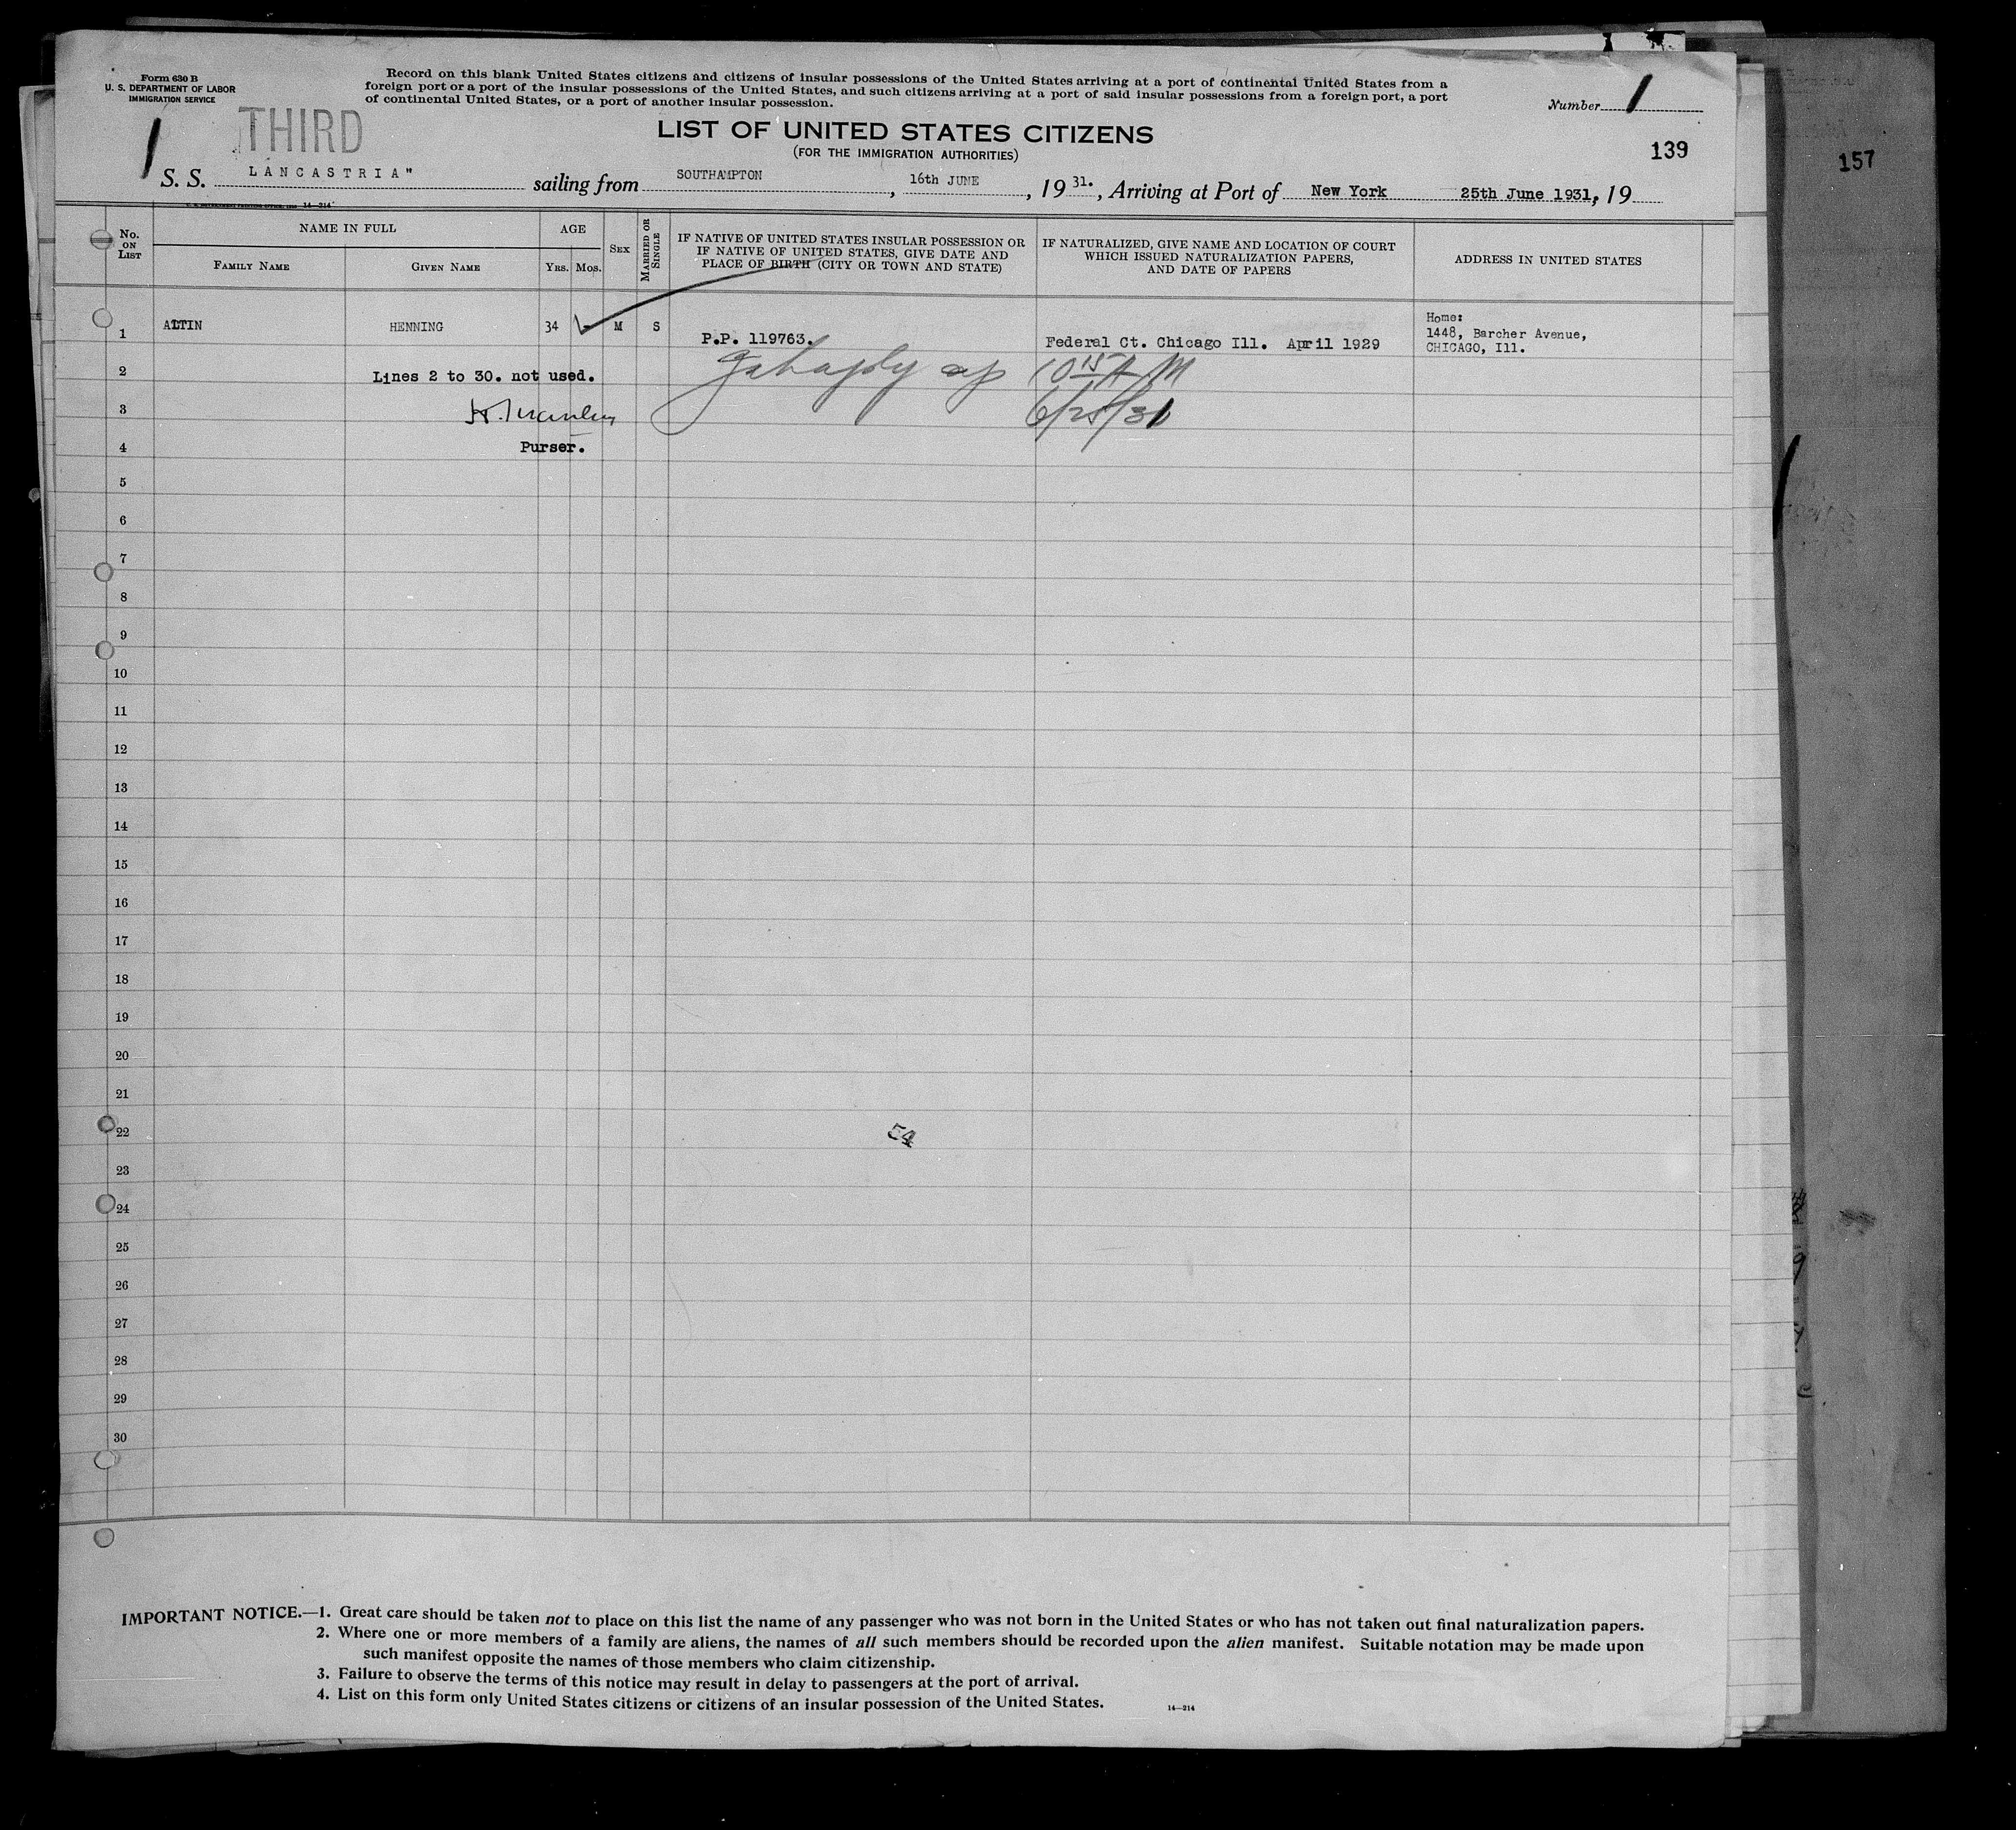 Form 630 B
U. S. DEPARTMENT OF LABOR
IMMIGRATION SERVICE
Record on this blank United States citizens and citizens of insular possessions of the United States arriving at a port of continental United States from a
foreign port or a port of the insular possessions of the United States, and such citizens arriving at a port of said insular possessions from a foreign port, a port
of continental United States, or a port of another insular possession.
Number 1
1
THIRD
LIST OF UNITED STATES CITIZENS
(FOR THE IMMIGRATION AUTHORITIES)
139
157
S. S. LANCASTRIA" sailing from SOUTHAMPTON, 16th JUNE, 1931., Arriving at Port of New York 25th June 1931, 19
14—214
No. ON LIST
NAME IN FULL
FAMILY NAME
GIVEN NAME
AGE
YRS.
MOS.
SEX
MARRIED OR SINGLE
IF NATIVE OF UNITED STATES INSULAR POSSESSION OR
IF NATIVE OF UNITED STATES, GIVE DATE AND
PLACE OF BIRTH (CITY OR TOWN AND STATE)
IF NATURALIZED, GIVE NAME AND LOCATION OF COURT
WHICH ISSUED NATURALIZATION PAPERS,
AND DATE OF PAPERS
ADDRESS IN UNITED STATES
1 ALTIN HENNING 34 - M S P.P. 119763. Federal Ct. Chicago Ill. April 1929
Home:
1448, Barcher Avenue,
CHICAGO, Ill.
2 Lines 2 to 30. not used. 10 15 A M
3 6/25/31
4 Purser.
5
6
7
8
9
10
11
12
13
14
15
16
17
18
19
20
21
22
54
23
24
25
26
27
28
29
30
IMPORTANT NOTICE.—1. Great care should be taken not to place on this list the name of any passenger who was not born in the United States or who has not taken out final naturalization papers.
2. Where one or more members of a family are aliens, the names of all such members should be recorded upon the alien manifest. Suitable notation may be made upon
such manifest opposite the names of those members who claim citizenship.
3. Failure to observe the terms of this notice may result in delay to passengers at the port of arrival.
4. List on this form only United States citizens or citizens of an insular possession of the United States.
14—214